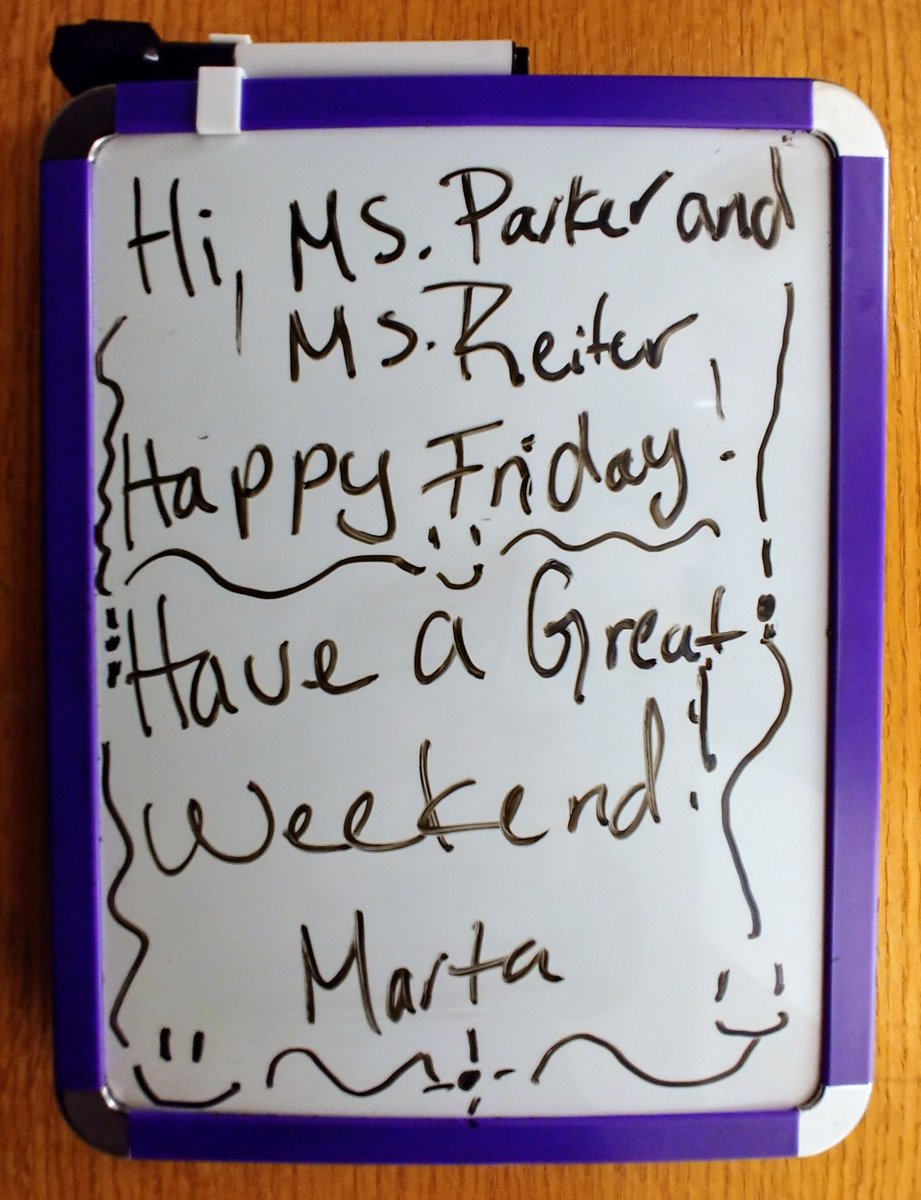 Hi, Ms. Parker and
Ms. Reiter
Happy Friday!
Have a Great
Weekend!
Marta